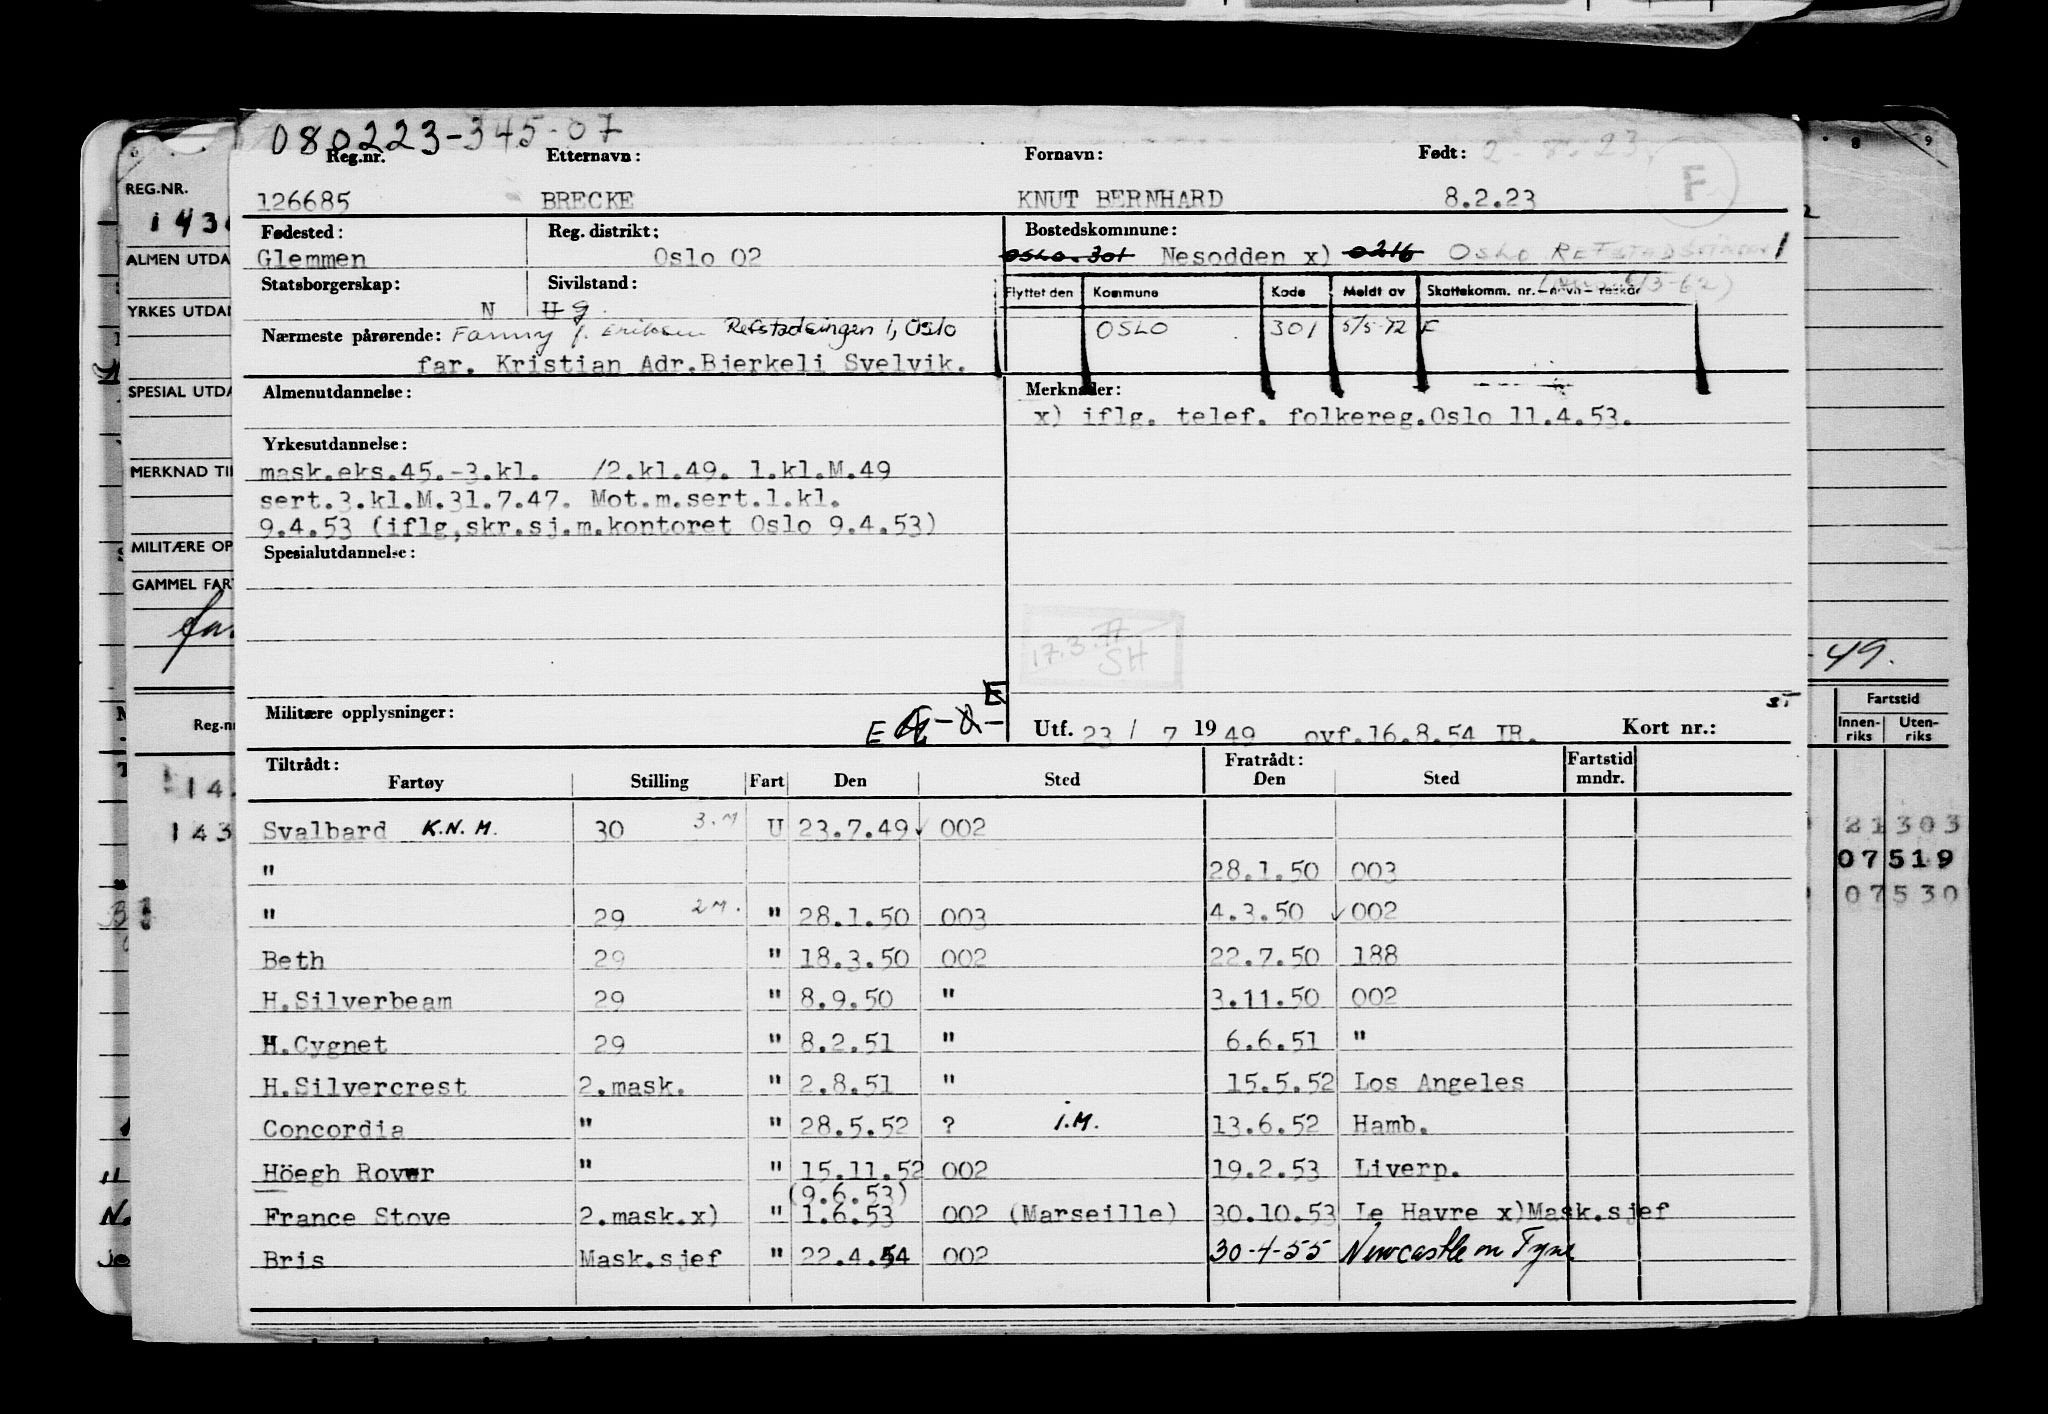 080223-345-07
Reg.nr. Etternavn: Fornavn: Født:
126685 BRECKE KNUT BERNHARD 8.2.23 F
Fødested: Reg. distrikt: Bostedskommune:
Glemmen Oslo 02 OSLO. 301 Nesodden x) 0216 OSLO REFSTADSVINGEN 1
Statsborgerskap: Sivilstand: Flyttet den Kommune Kode Meldt av Skattekomm. nr. – navn –
N U g.
Nærmeste pårørende: Fanny f. Eriksen Refstadsvingen 1, Oslo OSLO 301 5/5-72 F
far. Kristian Adr.Bjerkeli Svelvik.
Almenutdannelse: Merknader:
x) iflg. telef. folkereg.Oslo 11.4.53.
Yrkesutdannelse:
mask.eks.45.-3.kl. /2.kl.49. 1.kl.M.49
sert.3.kl.M.31.7.47. Mot.m.sert.1.kl.
9.4.53 (iflg,skr.sj.m.kontoret Oslo 9.4.53)
Spesialutdannelse:
17.3.77
SH
Militære opplysninger: E
Utf. 23 / 7 19 49 ovf.16.8.54 IR. Kort nr.:
Tiltrådt: Fratrådt: Fartstid
Fartøy Stilling Fart Den Sted Den Sted mndr.
Svalbard K.N.M. 30 3.M U 23.7.49 002
" 28.1.50 003
" 29 2M. " 28.1.50 003 4.3.50 002
Beth 29 " 18.3.50 002 22.7.50 188
H.Silverbeam 29 " 8.9.50 " 3.11.50 002
H.Cygnet 29 " 8.2.51 " 6.6.51 "
H.Silvercrest 2.mask. " 2.8.51 " 15.5.52 Los Angeles
Concordia " " 28.5.52 ? i.M. 13.6.52 Hamb.
Höegh Rover " " 15.11.52 002 19.2.53 Liverp.
(9.6.53)
France Stove 2.mask.x) " 1.6.53 002 (Marseille) 30.10.53 Le Havre x)Mask.sjef
Bris Mask.sjef " 22.4.54 002 30-4-55 Newcastle on Tyne
REG.NR.
ALMEN UTDA
YRKES UTDA
SPESIAL UTDA
MERKNAD TI
MILITÆRE OP
GAMMEL FAR
Reg.n
143
49.
Fartstid
Innen- Uten-
riks riks
21303
07519
07530